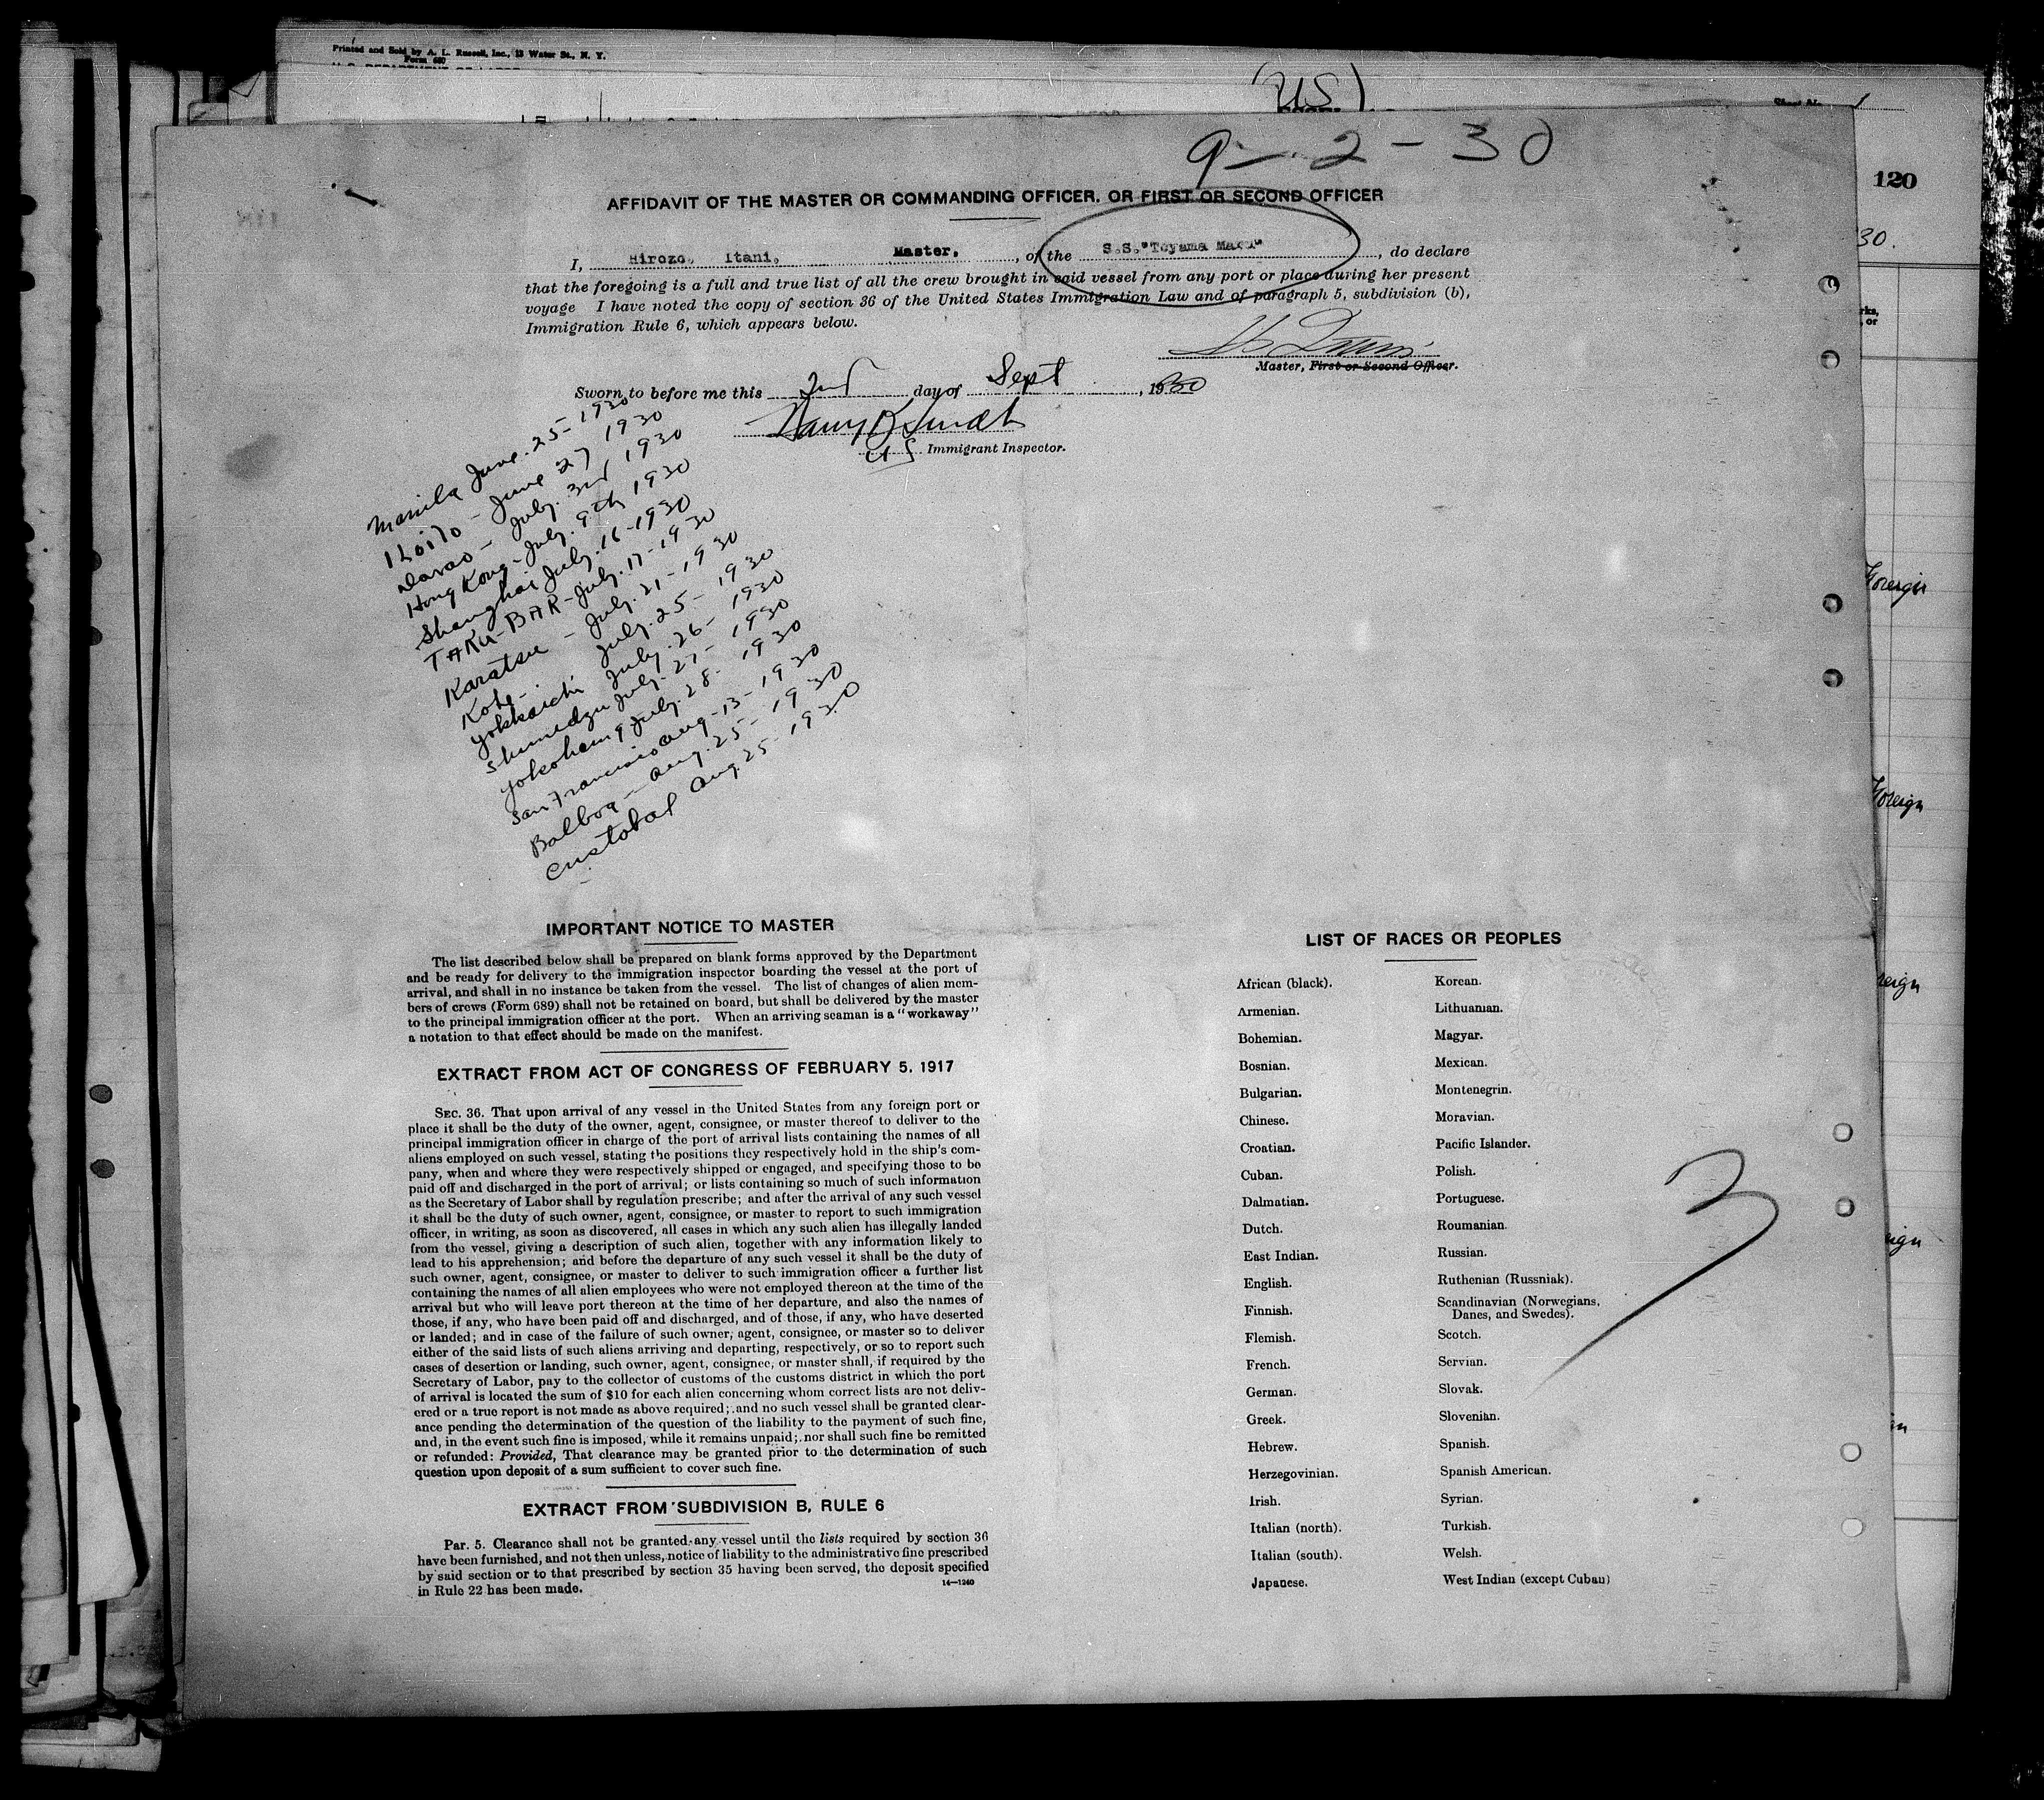 Printed and Sold by A. L. Russell, Inc., 13 Water St., N. Y.
Form 680
(U.S.)
120
30.
9-2-30
AFFIDAVIT OF THE MASTER OR COMMANDING OFFICER, OR FIRST OR SECOND OFFICER
I, Hirozo, Itani, Master, , of the S.S."Toyama Maru" , do declare
that the foregoing is a full and true list of all the crew brought in said vessel from any port or place during her present
voyage I have noted the copy of section 36 of the United States Immigration Law and of paragraph 5, subdivision (b),
Immigration Rule 6, which appears below.
Master, First or Second Officer.
Sworn to before me this 2nd day of Sept , 1930
US Immigrant Inspector.
Manila June. 25-1930
Iloilo - June 27 1930
Davao - July. 3rd 1930
Hong Kong - July. 9th 1930
Shanghai July. 16-1930
TAKU-BAR-July. 17-1930
Karatsu - July. 21-1930
Kobe- July. 25-1930
Yokkaichi July. 26-1930
Shimedzu July. 27-1930
Yokohama July. 28. 1930
San Francisco Aug-13-1930
Balboa - Aug. 25-1930
Cristobal Aug. 25-1930
IMPORTANT NOTICE TO MASTER
The list described below shall be prepared on blank forms approved by the Department
and be ready for delivery to the immigration inspector boarding the vessel at the port of
arrival, and shall in no instance be taken from the vessel. The list of changes of alien mem-
bers of crews (Form 689) shall not be retained on board, but shall be delivered by the master
to the principal immigration officer at the port. When an arriving seaman is a "workaway"
a notation to that effect should be made on the manifest.
EXTRACT FROM ACT OF CONGRESS OF FEBRUARY 5, 1917
SEC. 36. That upon arrival of any vessel in the United States from any foreign port or
place it shall be the duty of the owner, agent, consignee, or master thereof to deliver to the
principal immigration officer in charge of the port of arrival lists containing the names of all
aliens employed on such vessel, stating the positions they respectively hold in the ship's com-
pany, when and where they were respectively shipped or engaged, and specifying those to be
paid off and discharged in the port of arrival; or lists containing so much of such information
as the Secretary of Labor shall by regulation prescribe; and after the arrival of any such vessel
it shall be the duty of such owner, agent, consignee, or master to report to such immigration
officer, in writing, as soon as discovered, all cases in which any such alien has illegally landed
from the vessel, giving a description of such alien, together with any information likely to
lead to his apprehension; and before the departure of any such vessel it shall be the duty of
such owner, agent, consignee, or master to deliver to such immigration officer a further list
containing the names of all alien employees who were not employed thereon at the time of the
arrival but who will leave port thereon at the time of her departure, and also the names of
those, if any, who have been paid off and discharged, and of those, if any, who have deserted
or landed; and in case of the failure of such owner, agent, consignee, or master so to deliver
either of the said lists of such aliens arriving and departing, respectively, or so to report such
cases of desertion or landing, such owner, agent, consignee, or master shall, if required by the
Secretary of Labor, pay to the collector of customs of the customs district in which the port
of arrival is located the sum of $10 for each alien concerning whom correct lists are not deliv-
ered or a true report is not made as above required; and no such vessel shall be granted clear-
ance pending the determination of the question of the liability to the payment of such fine,
and, in the event such fine is imposed, while it remains unpaid; nor shall such fine be remitted
or refunded: Provided, That clearance may be granted prior to the determination of such
question upon deposit of a sum sufficient to cover such fine.
EXTRACT FROM SUBDIVISION B, RULE 6
Par. 5. Clearance shall not be granted any vessel until the lists required by section 36
have been furnished, and not then unless, notice of liability to the administrative fine prescribed
by said section or to that prescribed by section 35 having been served, the deposit specified
in Rule 22 has been made.
14-1240
LIST OF RACES OR PEOPLES
African (black).
Armenian.
Bohemian.
Bosnian.
Bulgarian.
Chinese.
Croatian.
Cuban.
Dalmatian.
Dutch.
East Indian.
English.
Finnish.
Flemish.
French.
German.
Greek.
Hebrew.
Herzegovinian.
Irish.
Italian (north).
Italian (south).
Japanese.
Korean.
Lithuanian.
Magyar.
Mexican.
Montenegrin.
Moravian.
Pacific Islander.
Polish.
Portuguese.
Roumanian.
Russian.
Ruthenian (Russniak).
Scandinavian (Norwegians,
Danes, and Swedes).
Scotch.
Servian.
Slovak.
Slovenian.
Spanish.
Spanish American.
Syrian.
Turkish.
Welsh.
West Indian (except Cuban)
3
Foreign
Foreign